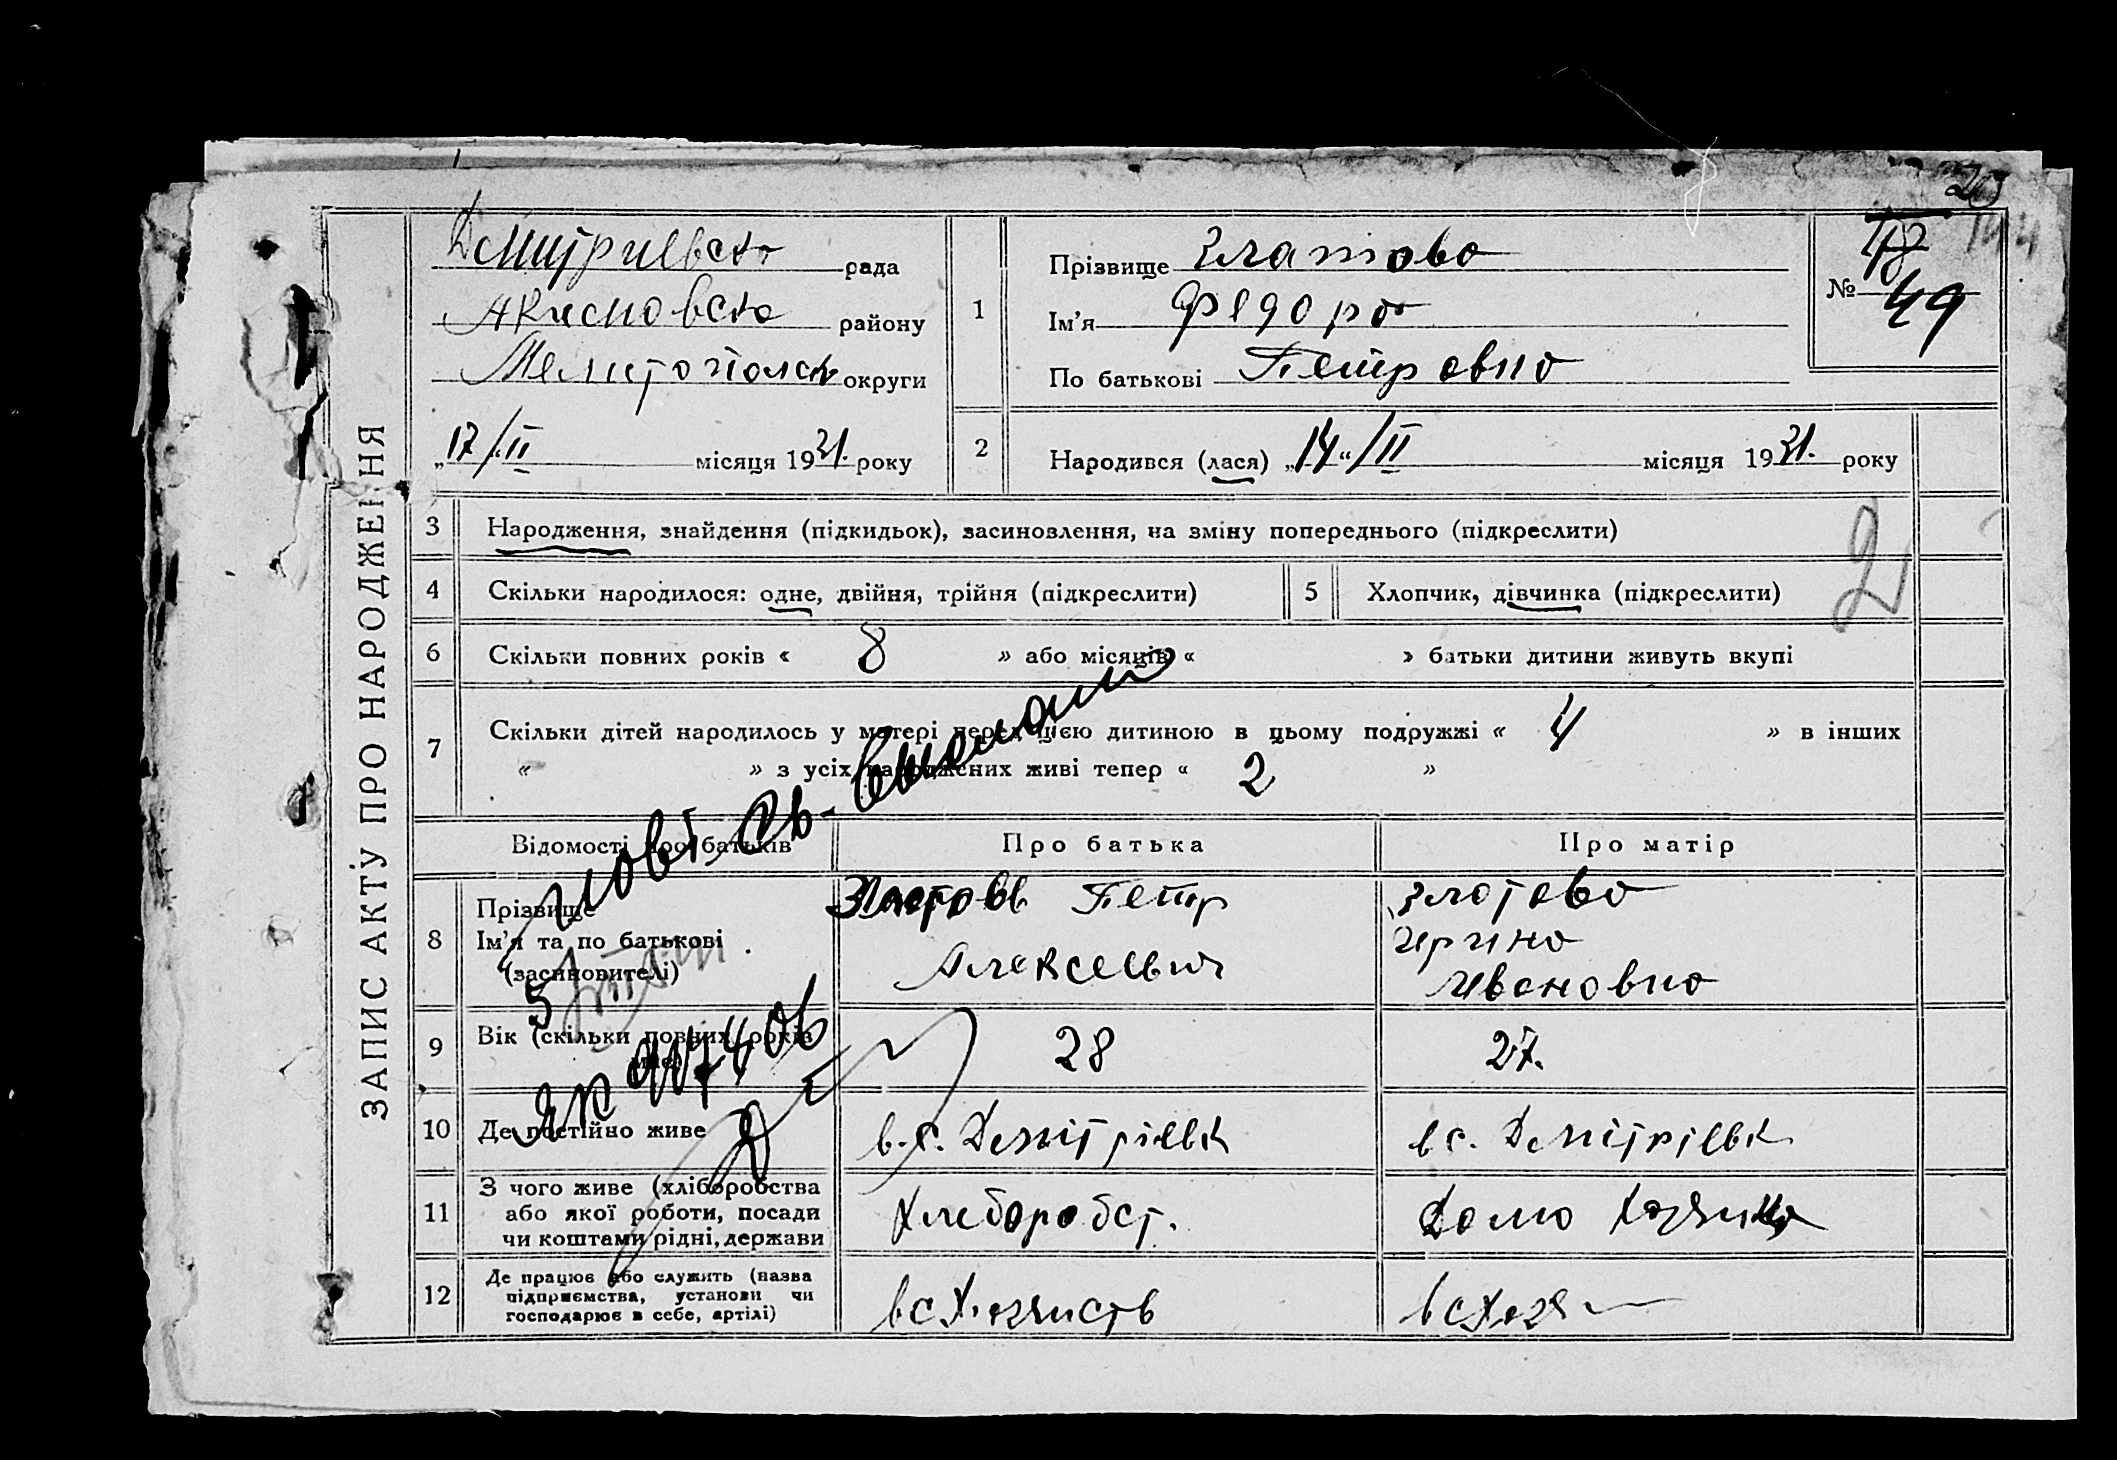 ЗАПИС АКТУ ПРО НАРОДЖЕННЯ
Дмитриевска рада
Акимовска району
Мелитопольск округи
„17/II місяця 1931. року
1
Прізвище Златова
Ім'я Федора
По батькові Петровна
№ 49
2
Народився (лася) „14“/II місяця 1931. року
3 Народження, знайдення (підкидьок), засиновлення, на зміну попереднього (підкреслити)
4 Скільки народилося: одне, двійня, трійня (підкреслити)
5 Хлопчик, дівчинка (підкреслити)
2
6 Скільки повних років « 8 » або місяців « » батьки дитини живуть вкупі
7 Скільки дітей народилось у матері перед цією дитиною в цьому подружжі « 4 » в інших
« » з усіх народжених живі тепер « 2 »
Відомості про батьків
Про батька
Про матір
8 Прізвище
Ім'я та по батькові
(засиновителі)
Златовв Петр
Алексеевич
Златова
Ирина
Ивановна
9 Вік (скільки повних років
має)
28
27.
10 Де постійно живе
в.с. Дмітрієвк
в с. Дмітрієвк
11 З чого живе (хліборобства
або якої роботи, посади
чи коштами рідні, держави
Хлеборобст.
Домо хазяика
12 Де працює або служить (назва
підприємства, установи чи
господарює в себе, артілі)
в с Хозяиств
в с Хозя